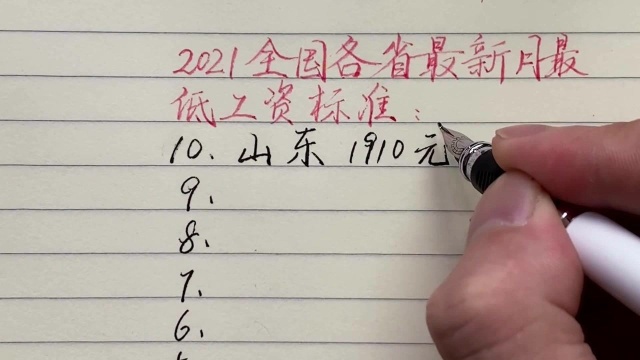 2021全国各省最新月最
低工资标准：
10、山东 1910元
9、
8、
7、
6、